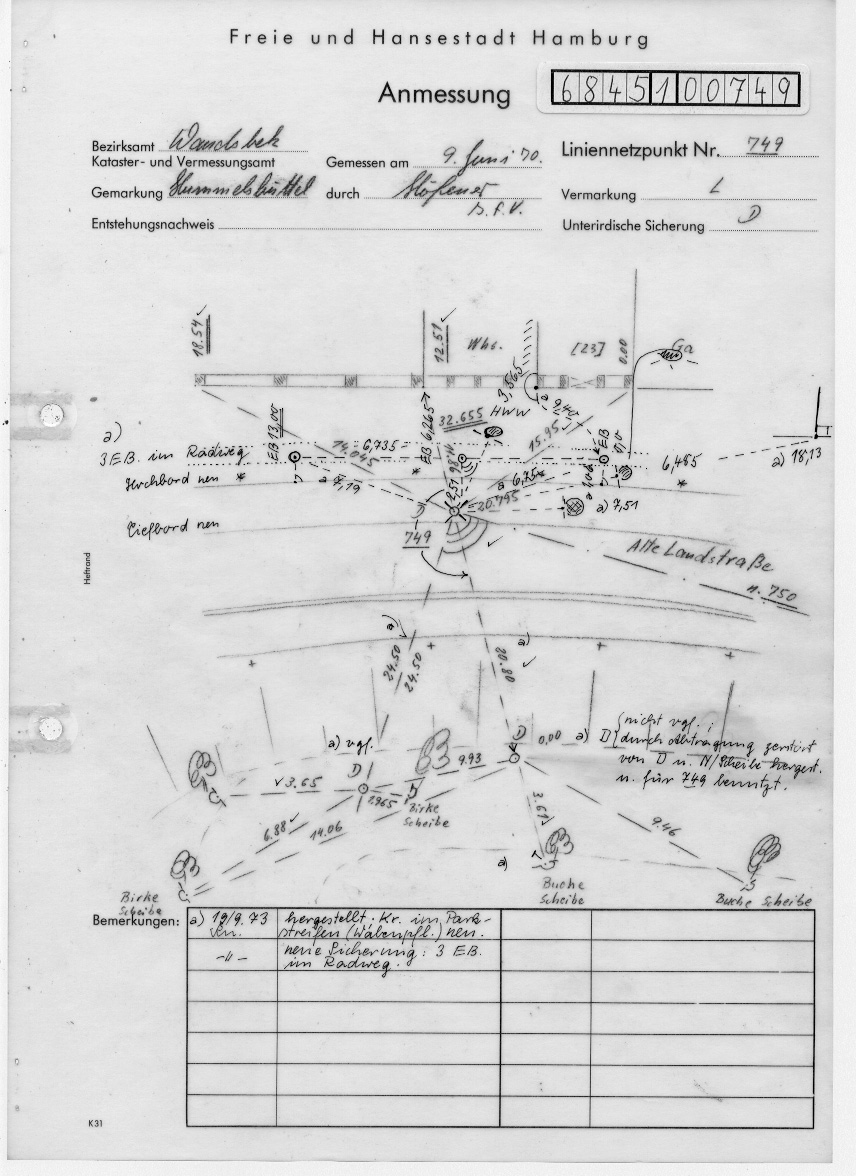 Freie und Hansestadt Hamburg
Anmessung
6845100749
Bezirksamt Wandsbek
Kataster- und Vermessungsamt
Gemessen am 9. Juni 70.
Liniennetzpunkt Nr. 749
Gemarkung Hummelsbüttel
durch
Vermarkung L
Entstehungsnachweis
Unterirdische Sicherung D
18.54
12.51
Whs.
[23]
0.00
Ga
3,565
HWW
9,40
32.655
EB 6,265
EB 13,00
6,735
14.045
15.95
EB 0,0
a)
3 EB. im Radweg
Hochbord neu *
Tiefbord neu
6,485
a) 18,13
a 7,19
a 6,75
20.795
a) 7,51
749
Alte Landstraße
n. 750
a)
24.50
24.50
20.80
a)
a) vgl.
D
9.93
D
0,00
a) D nicht vgl.;
durch Abtragung zerstört
von D u. N/Scheibe hergest.
u. für 749 benutzt.
3.65
2.965
Birke
Scheibe
3.61
6.88
14.06
9.46
a)
Birke
Scheibe
Buche
Scheibe
Buche Scheibe
Bemerkungen:
a) 19/9.73
hergestellt: Kr. im Park-
streifen (Wabenpfl.) neu.
-"-
neue Sicherung: 3 EB.
im Radweg.
Heftrand
K 31